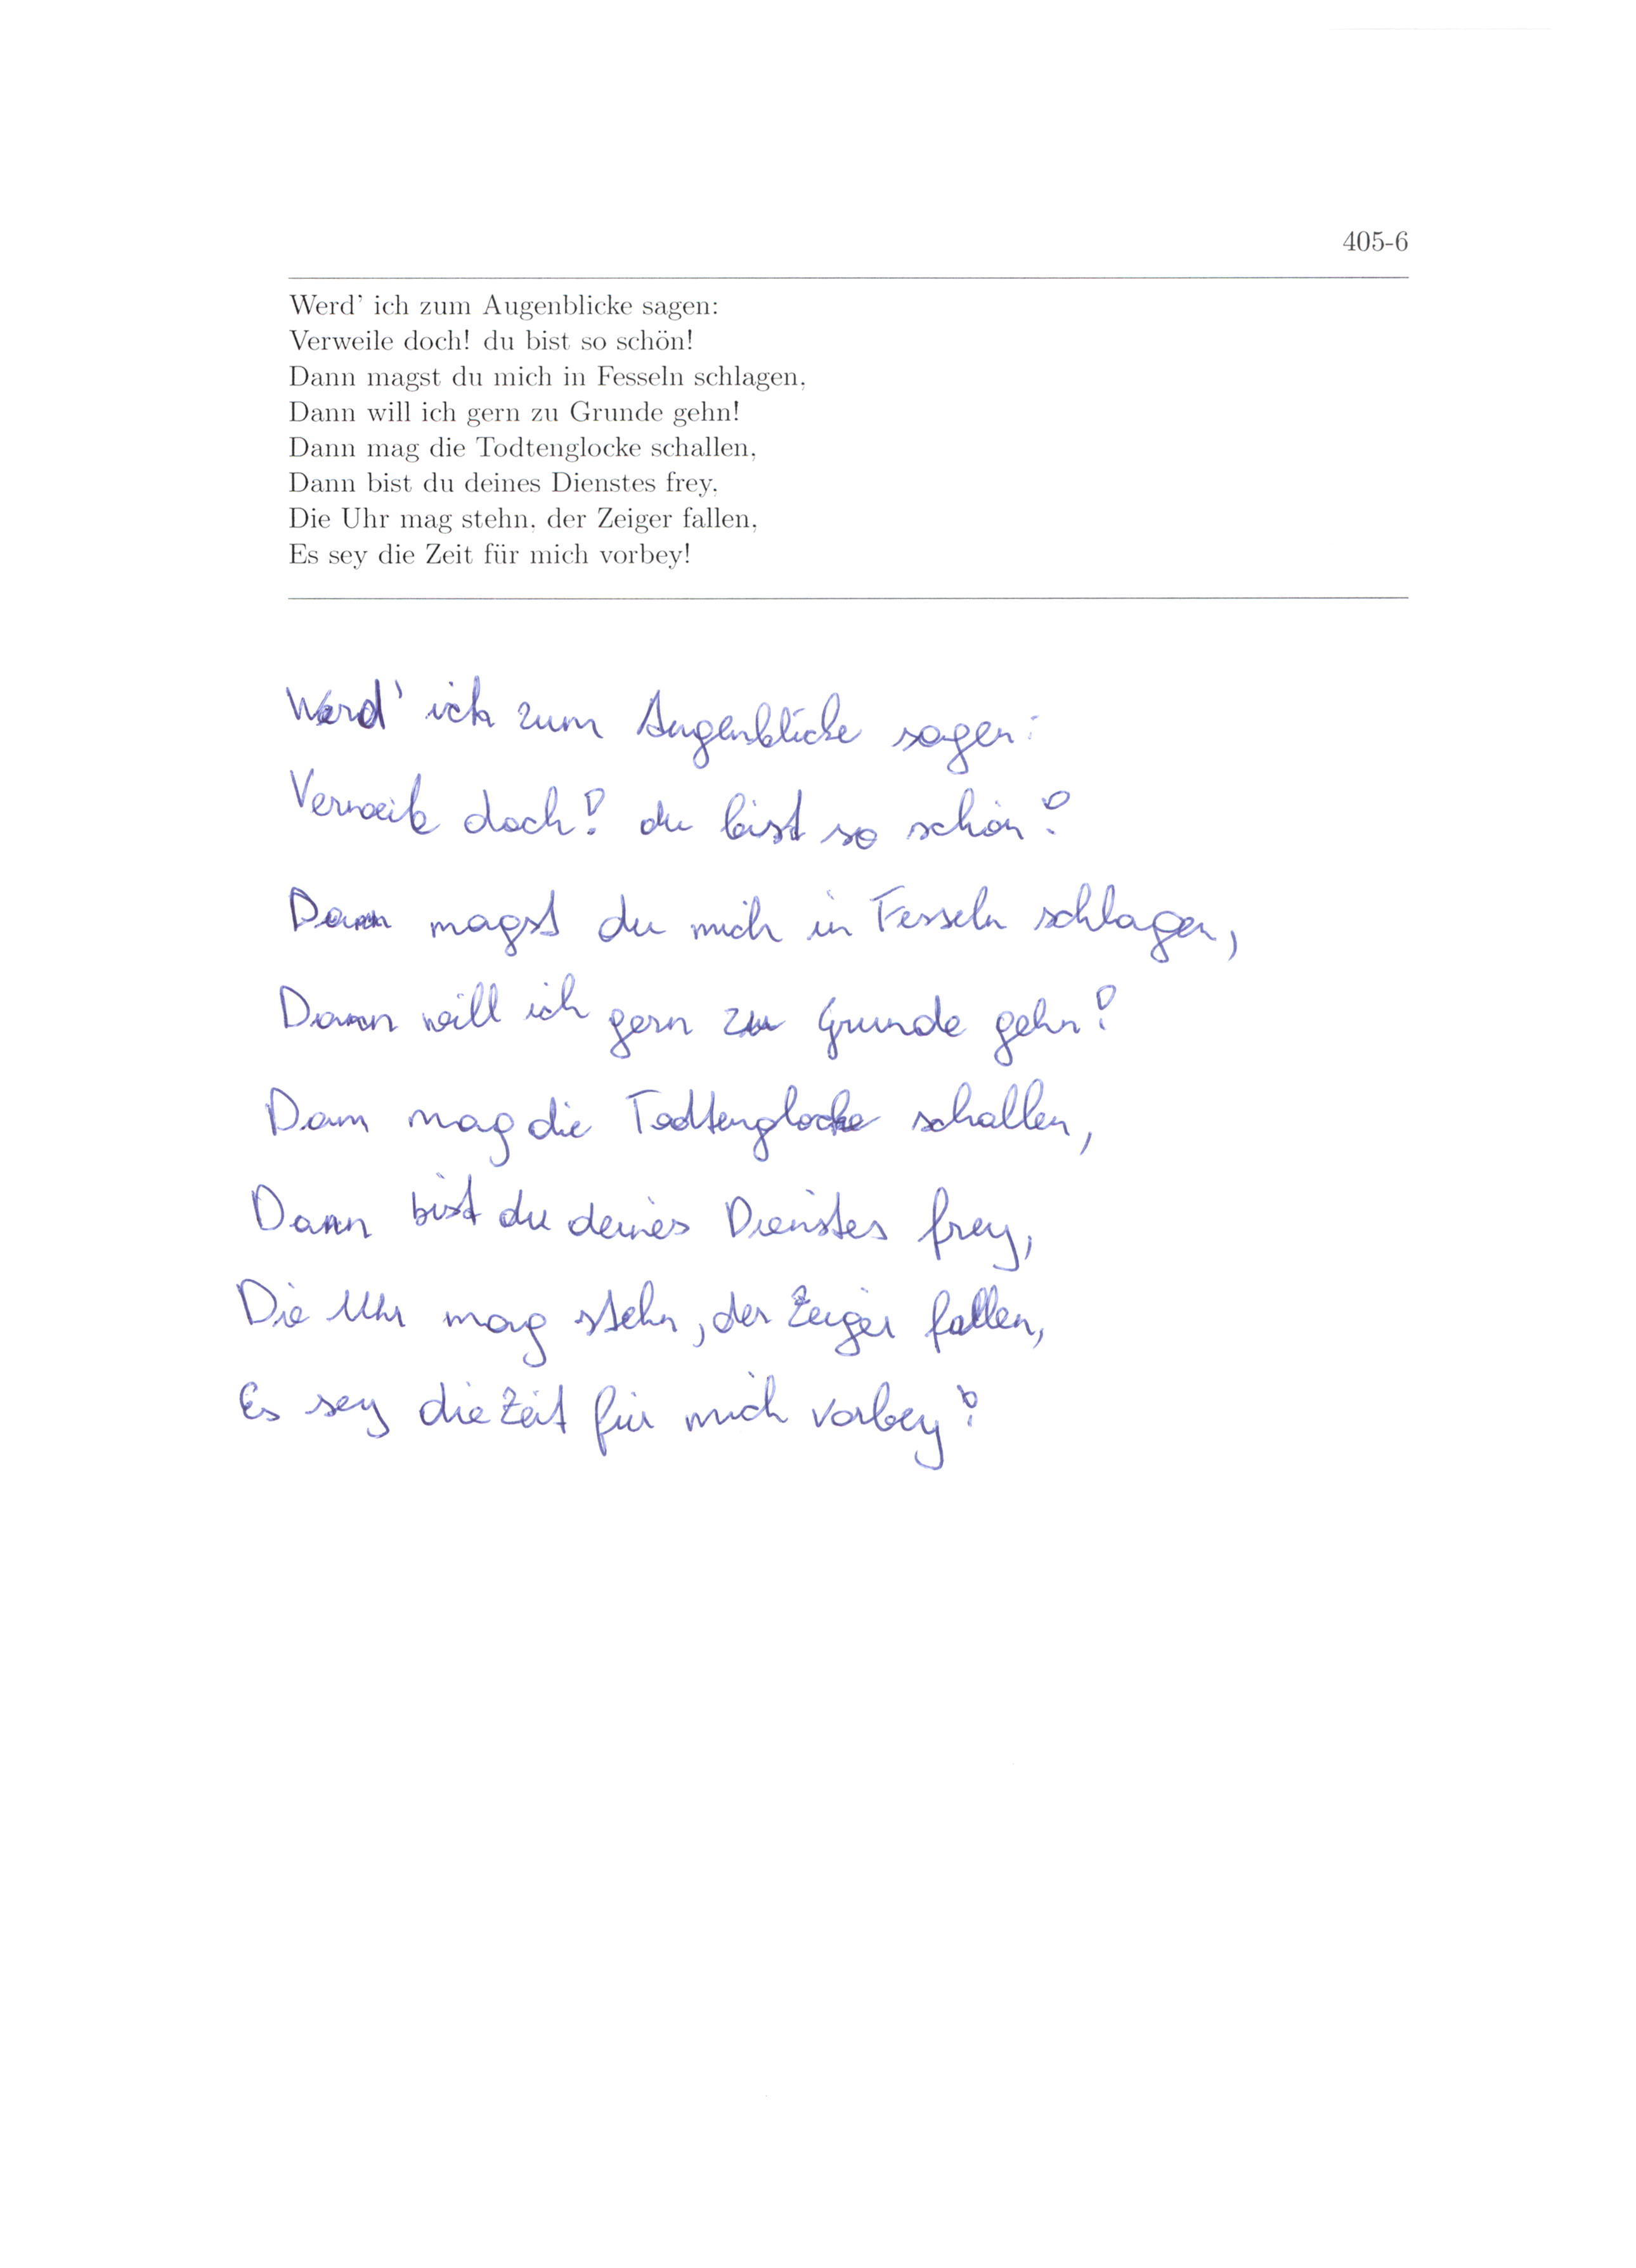 405-6
Werd' ich zum Augenblicke sagen:
Verweile doch! du bist so schön!
Dann magst du mich in Fesseln schlagen,
Dann will ich gern zu Grunde gehn!
Dann mag die Todtenglocke schallen,
Dann bist du deines Dienstes frey,
Die Uhr mag stehn, der Zeiger fallen,
Es sey die Zeit für mich vorbey!
Werd' ich zum Augenblicke sagen:
Verweile doch! du bist so schön!
Dann magst du mich in Fesseln schlagen,
Dann will ich gern zu Grunde gehn!
Dann mag die Todtenglocke schallen,
Dann bist du deines Dienstes frey,
Die Uhr mag stehn, der Zeiger fallen,
Es sey die Zeit für mich vorbey!